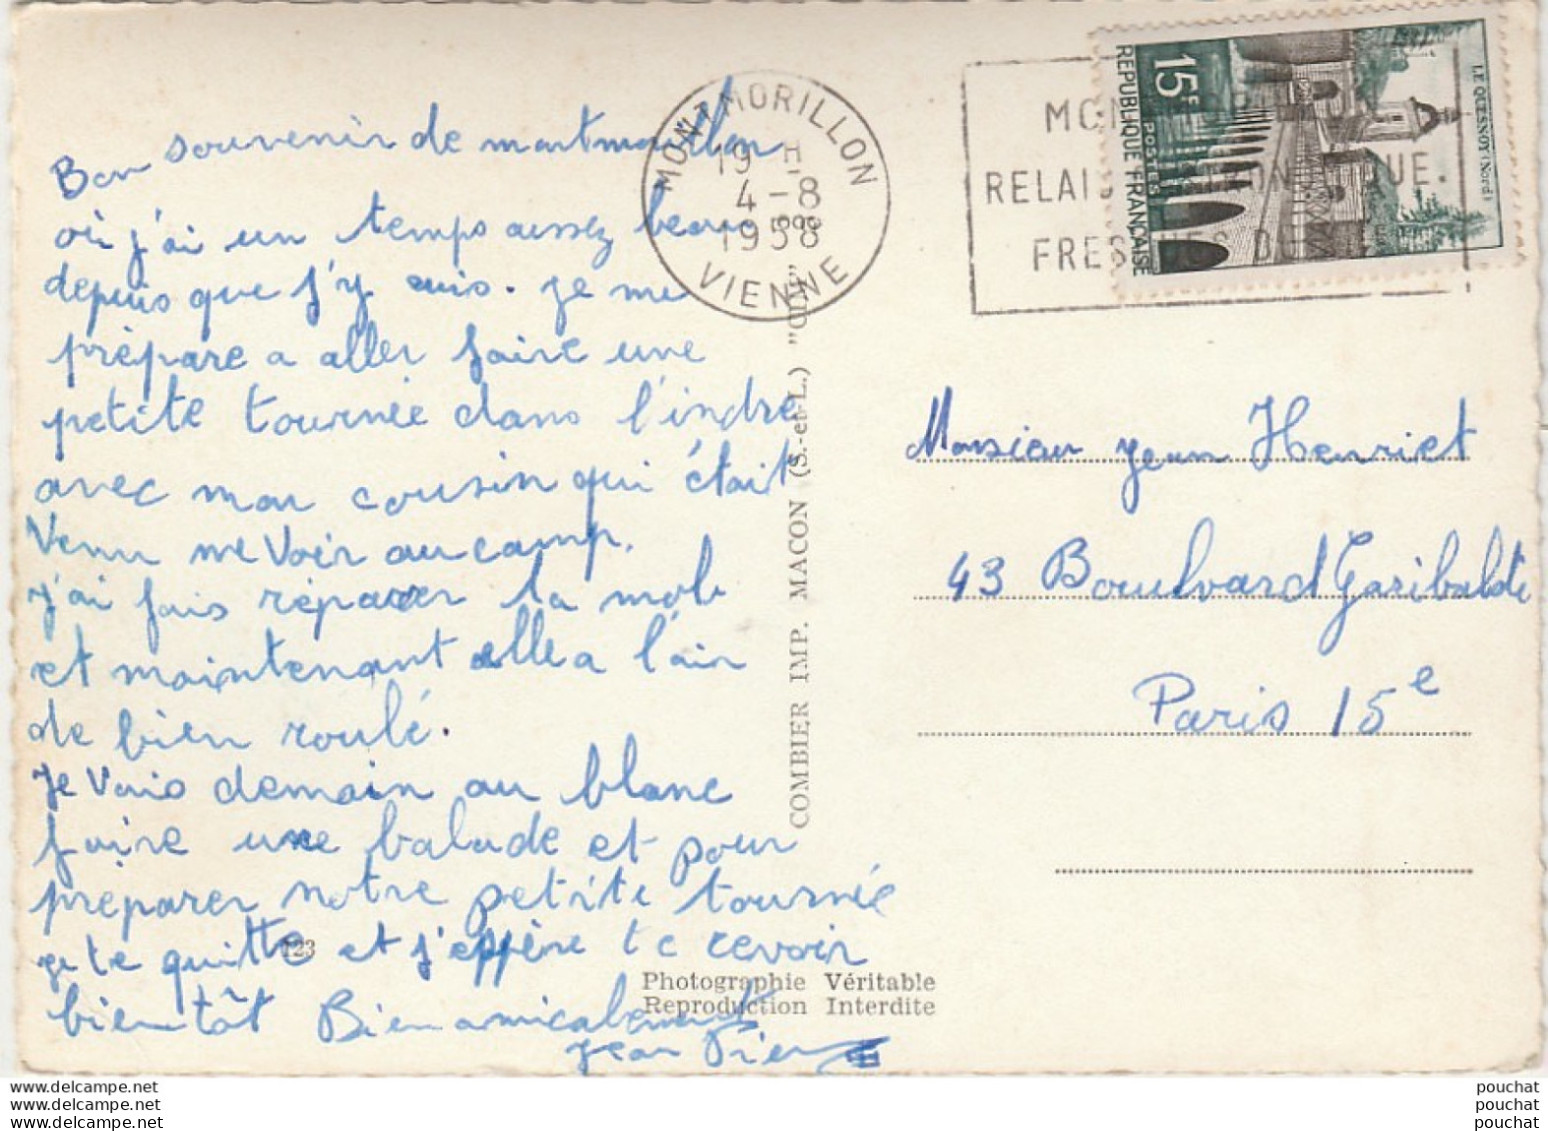 Bon souvenir de montmorillon
où j'ai un temps assez beau
depuis que j'y suis. je me
prépare a aller faire une
petite tournée dans l'indre
avec mon cousin qui était
Venu me Voir au camp.
j'ai fais réparer ta mob
et maintenant elle a l'air
de bien roulé.
Je Vais demain au blanc
faire une balade et pour
préparer notre petite tournée
je te quitte et j'espère te revoir
bientôt Bien amicalement
jean Pierre
123
COMBIER IMP. MACON (S.-et-L.) "CIM"
Photographie Véritable
Reproduction Interdite
MONTMORILLON
19 H
4-8
1958
VIENNE
RELAIS
FRES
15F
REPUBLIQUE FRANÇAISE
POSTES
LE QUESNOY (Nord)
Monsieur jean Henriet
43 Boulvard Garibaldi
Paris 15e
www.delcampe.net
www.delcampe.net
www.delcampe.net
pouchat
pouchat
pouchat